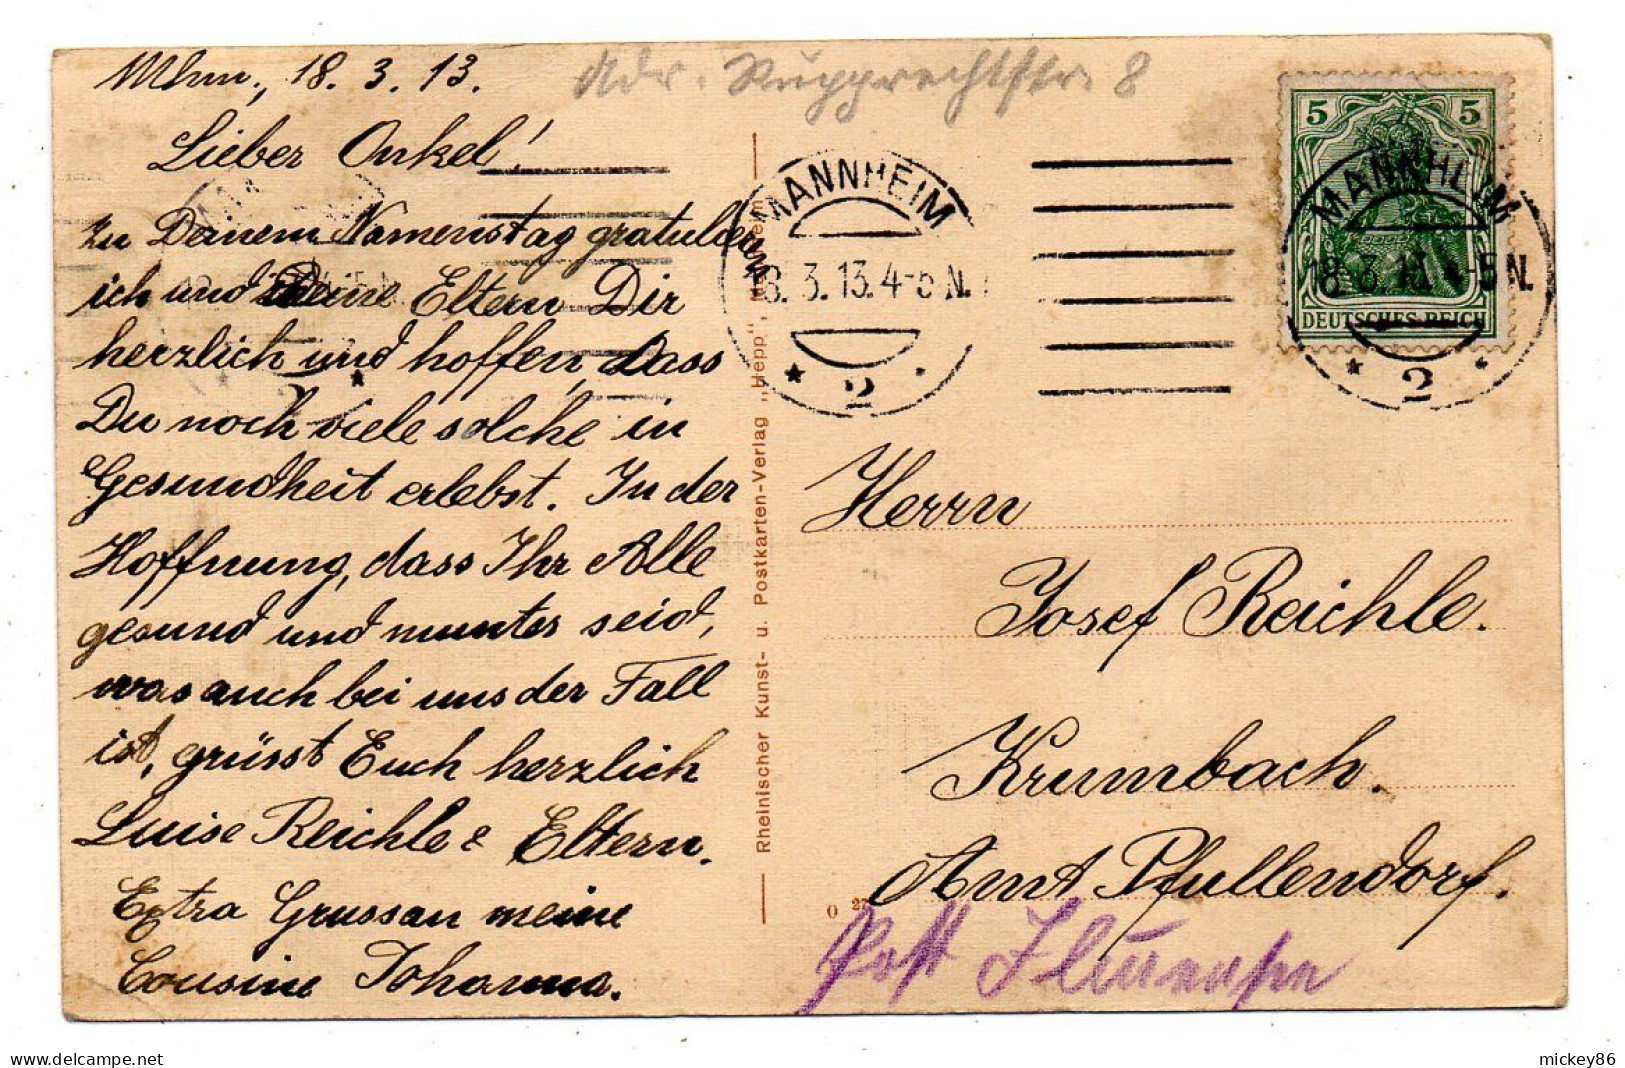 Mhm., 18.3.13.
Adr. Rupprechtstr. 8
Lieber Onkel!
Zu Deinem Namenstag gratulieren
ich und meine Eltern Dir
herzlich und hoffen, dass
Du noch viele solche in
Gesundheit erlebst. In der
Hoffnung, dass Ihr Alle
gesund und munter seid,
was auch bei uns der Fall
ist, grüsst Euch herzlich
Luise Reichle & Eltern.
Extra Gruss an meine
Cousine Johanna.
Rheinischer Kunst- u. Postkarten-Verlag "Hepp", Mannheim
MANNHEIM
18.3.13.4-5N.
* 2 *
5 5
DEUTSCHES REICH
MANNHEIM
18.3.13.4-5N.
* 2 *
Herrn
Josef Reichle.
Krumbach.
Amt Pfullendorf.
0 27
Post
mickey86